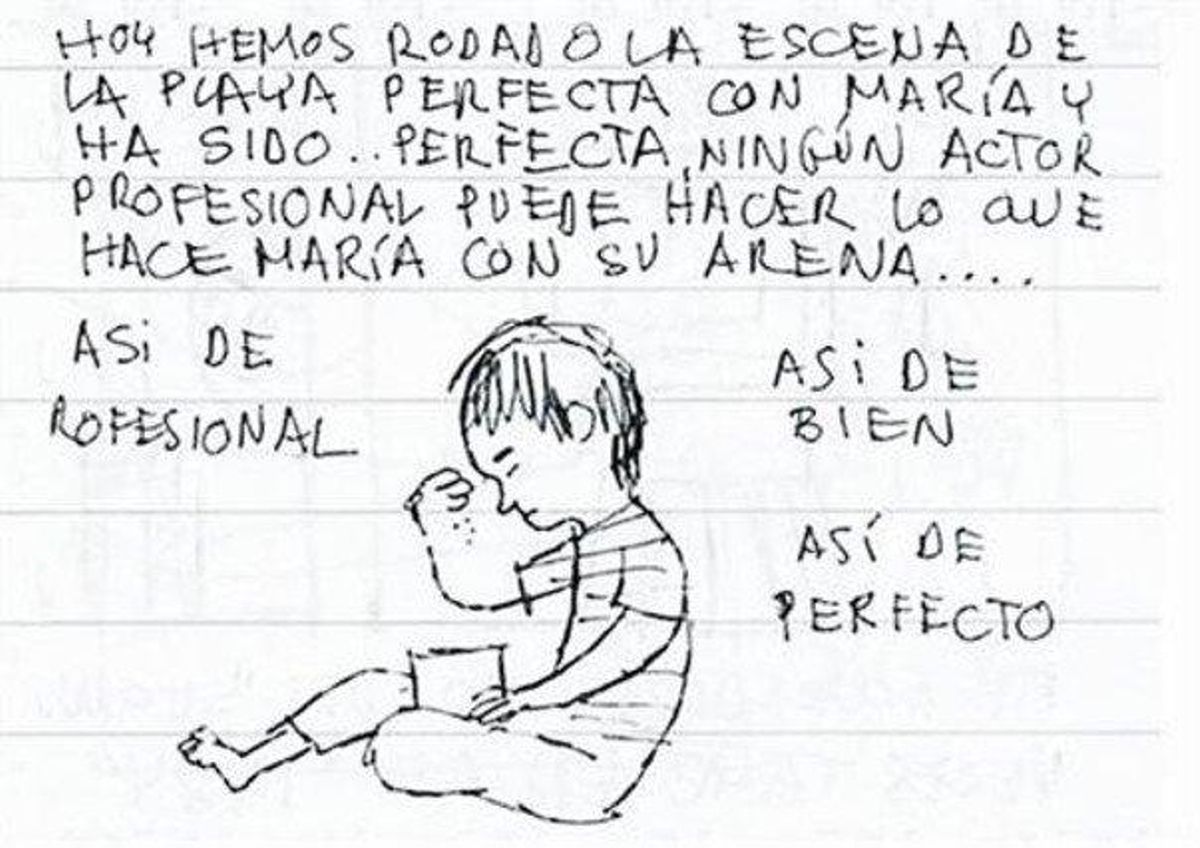 HOY HEMOS RODADO LA ESCENA DE
LA PLAYA PERFECTA CON MARÍA Y
HA SIDO.. PERFECTA, NINGÚN ACTOR
PROFESIONAL PUEDE HACER LO QUE
HACE MARÍA CON SU ARENA....
ASi DE
ROFESIONAL
ASi DE
BIEN
ASÍ DE
PERFECTO